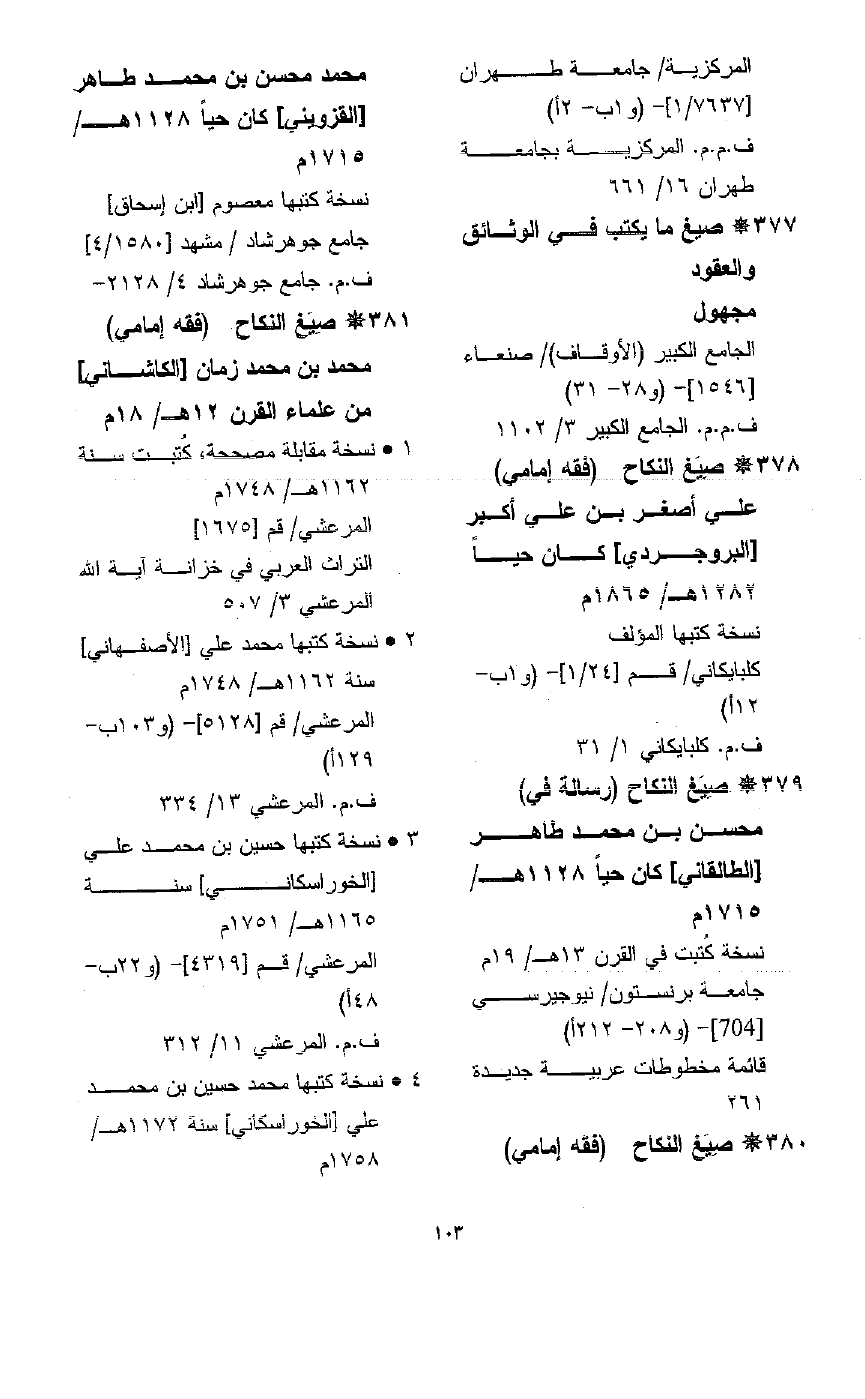 المركزية/ جامعة طهران
[١/٧٦٣٧]- (و١ب- ٢أ)
ف.م.م. المركزية بجامعة
طهران ١٦/ ٦٦١
٣٧٧* صيغ ما يكتب في الوثائق
والعقود
مجهول
الجامع الكبير (الأوقاف)/ صنعاء
[١٥٤٦]- (و٢٨- ٣١)
ف.م.م. الجامع الكبير ٣/ ١١٠٢
٣٧٨* صِيَغ النكاح (فقه إمامي)
علي أصغر بن علي أكبر
[البروجردي] كان حياً
١٢٨٢هـ/ ١٨٦٥م
نسخة كتبها المؤلف
كلبايكاني/ قم [١/٢٤]- (و١ب-
١٢أ)
ف.م. كلبايكاني ١/ ٣١
٣٧٩* صِيَغ النكاح (رسالة في)
محسن بن محمد طاهر
[الطالقاني] كان حياً ١١٢٨هـ/
١٧١٥م
نسخة كُتبت في القرن ١٣هـ/ ١٩م
جامعة برنستون/ نيوجيرسي
[704]- (و٢٠٨- ٢١٢أ)
قائمة مخطوطات عربية جديدة
٢٦١
٣٨٠* صِيَغ النكاح (فقه إمامي)
محمد محسن بن محمد طاهر
[القزويني] كان حياً ١١٢٨هـ/
١٧١٥م
نسخة كتبها معصوم [ابن إسحاق]
جامع جوهرشاد / مشهد [٤/١٥٨٠]
ف.م. جامع جوهرشاد ٤/ ٢١٢٨-
٣٨١* صِيَغ النكاح (فقه إمامي)
محمد بن محمد زمان [الكاشاني]
من علماء القرن ١٢هـ/ ١٨م
١ • نسخة مقابلة مصححة، كُتبت سنة
١١٦٢هـ/ ١٧٤٨م
المرعشي/ قم [١٦٧٥]
التراث العربي في خزانة آية الله
المرعشي ٣/ ٥٠٧
٢ • نسخة كتبها محمد علي [الأصفهاني]
سنة ١١٦٢هـ/ ١٧٤٨م
المرعشي/ قم [٥١٢٨]- (و١٠٣ب-
١٢٩أ)
ف.م. المرعشي ١٣/ ٣٣٤
٣ • نسخة كتبها حسين بن محمد علي
[الخوراسكاني] سنة
١١٦٥هـ/ ١٧٥١م
المرعشي/ قم [٤٣١٩]- (و٢٢ب-
٤٨أ)
ف.م. المرعشي ١١/ ٣١٢
٤ • نسخة كتبها محمد حسين بن محمد
علي [الخوراسكاني] سنة ١١٧٢هـ/
١٧٥٨م
١٠٣